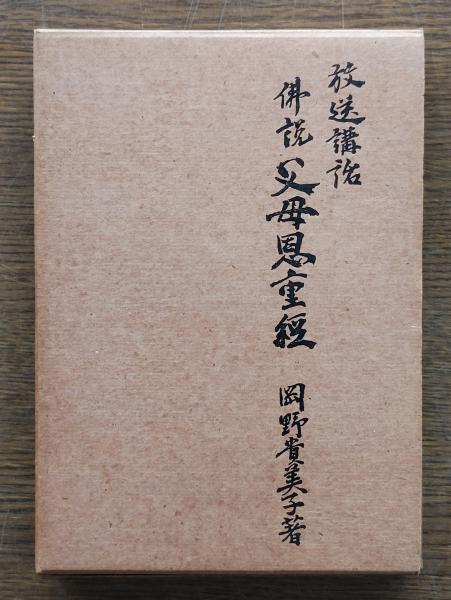 放送講話
佛説父母恩重経
岡野貴美子著